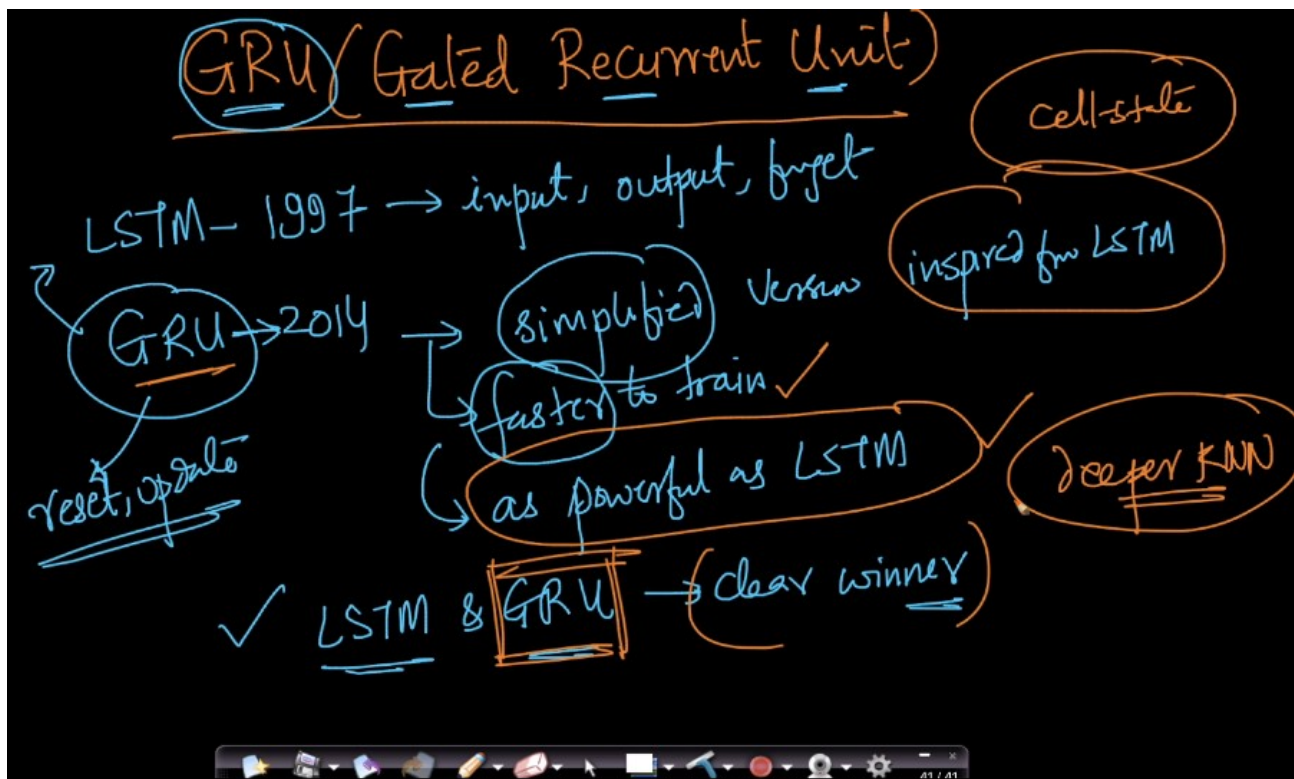 GRU (Gated Recurrent Unit)
cell-state
LSTM - 1997 → input, output, forget
inspired from LSTM
GRU → 2014 → simplified version
faster to train ✓
reset, update
as powerful as LSTM ✓
deeper RNN
✓ LSTM & GRU → (clear winner)
41/41